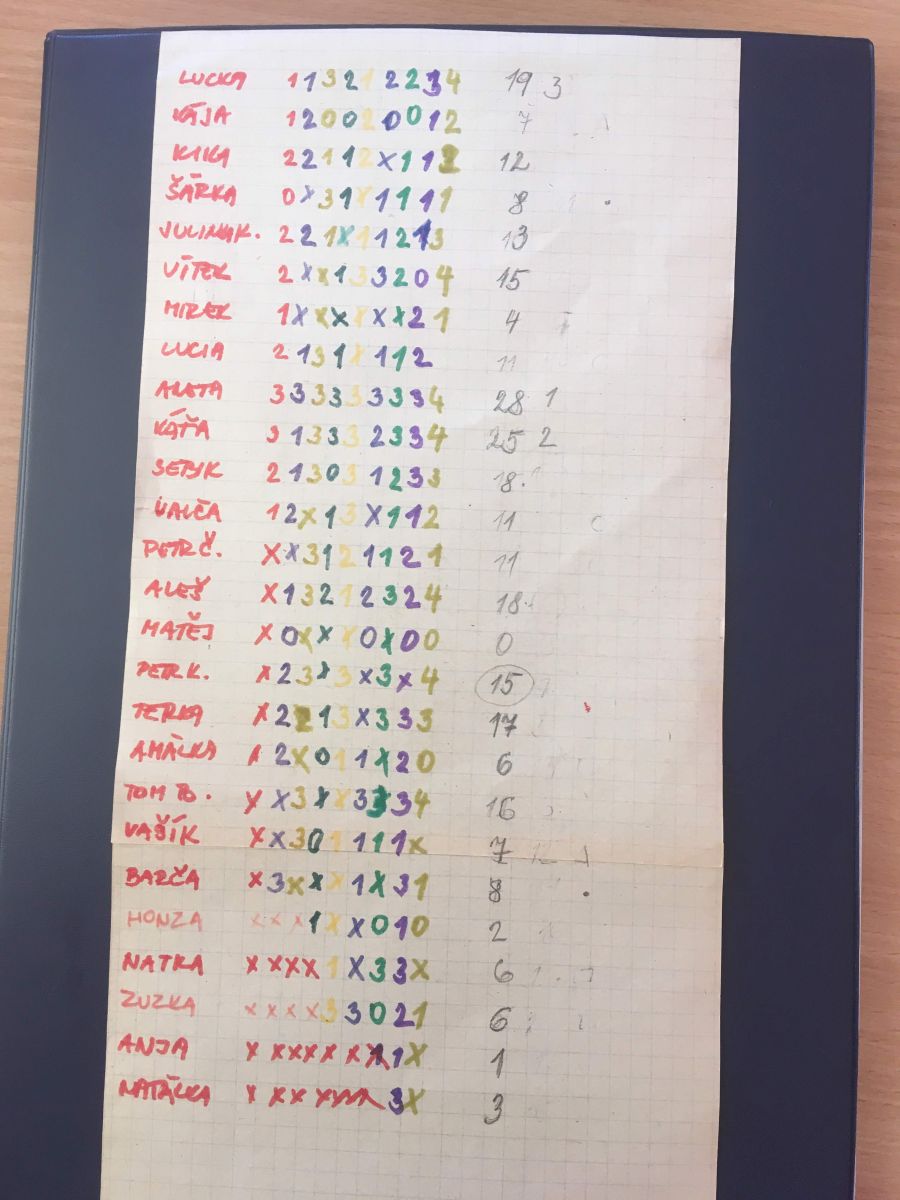 LUCKA 1 1 3 2 1 2 2 3 4 19 3
KÁJA 1 2 0 0 2 0 0 1 2 7
KIKA 2 2 1 1 2 X 1 1 2 12
ŠÁRKA 0 X 3 1 X 1 1 1 1 8
2 2 1 X 1 1 2 1 3 13
VÍTEK 2 X X 1 3 3 2 0 4 15
MIREK 1 X X X X X X 2 1 4
LUCIA 2 1 3 1 X 1 1 2 11
ANETA 3 3 3 3 3 3 3 3 4 28 1
KÁŤA 3 1 3 3 3 2 3 3 4 25 2
2 1 3 0 3 1 2 3 3 18
VALČA 1 2 X 1 3 X 1 1 2 11
PETR Č. X X 3 1 2 1 1 2 1 11
ALEŠ X 1 3 2 1 2 3 2 4 18
MATĚJ X 0 X X X 0 X 0 0 0
PETR K. X 2 3 X 3 X 3 X 4 15
TERKA X 2 2 1 3 X 3 3 3 17
AMÁLKA X 2 X 0 1 1 X 2 0 6
TOM TO. X X 3 X X 3 3 3 4 16
VAŠÍK X X 3 0 1 1 1 1 X 7
BARČA X 3 X X X 1 X 3 1 8
HONZA X X X 1 X X 0 1 0 2
NATKA X X X X 1 X 3 3 X 6
ZUZKA X X X X 3 3 0 2 1 6
ANJA X X X X X X 1 X 1
NATÁLKA X X X X 3 X 3